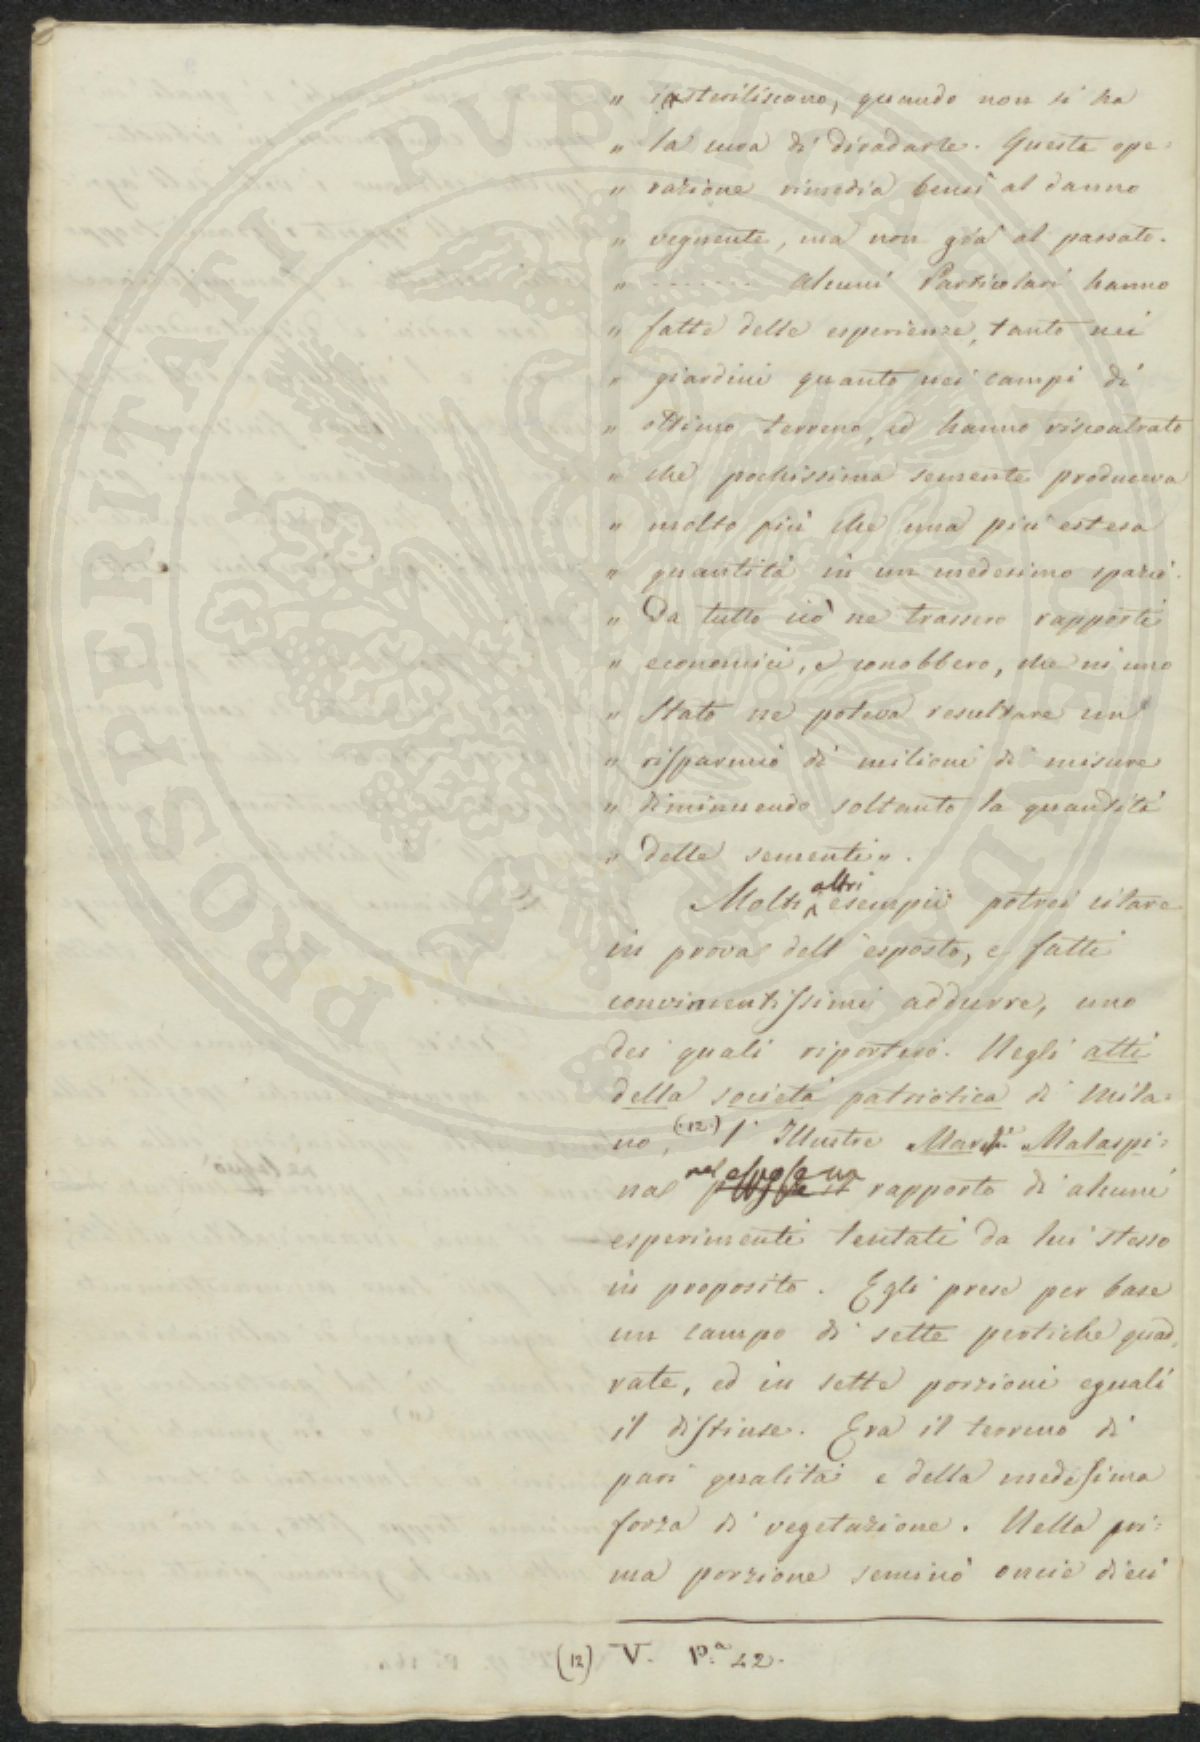 „ isteriliscono, quando non si ha
„ la cura di diradarle. Questa ope:
„ razione rimedia bensì al danno
„ vegnente, ma non già al passato.
„ ........ Alcuni Particolari hanno
„ fatte delle esperienze, tanto nei
„ giardini quanto nei campi di
„ ottimo terreno, ed hanno riscontrato
„ che pochissima semente produceva
„ molto più che una più estesa
„ quantità in un medesimo spazio.
„ Da tutto ciò ne trassero rapporti
„ economici, e conobbero, che in uno
„ Stato ne poteva resultare un
„ risparmio di milioni di misure
„ diminuendo soltanto la quantità
„ delle sementi„.
Molti altri esempii potrei citare
in prova dell'esposto, e fatti
convincentissimi addurre, uno
dei quali riporterò. Negli atti
della società patriotica di Mila:
no, (12) l'Illustre March. Malaspi:
na nel rapporto di alcuni
esperimenti tentati da lui stesso
in proposito. Egli prese per base
un campo di sette pertiche quad.
rate, ed in sette porzioni eguali
il distinse. Era il terreno di
pari qualità e della medesima
forza di vegetazione. Nella pri:
ma porzione seminò oncie dieci
(12) V. P.a 42.
PROSPERITATI PVBLI